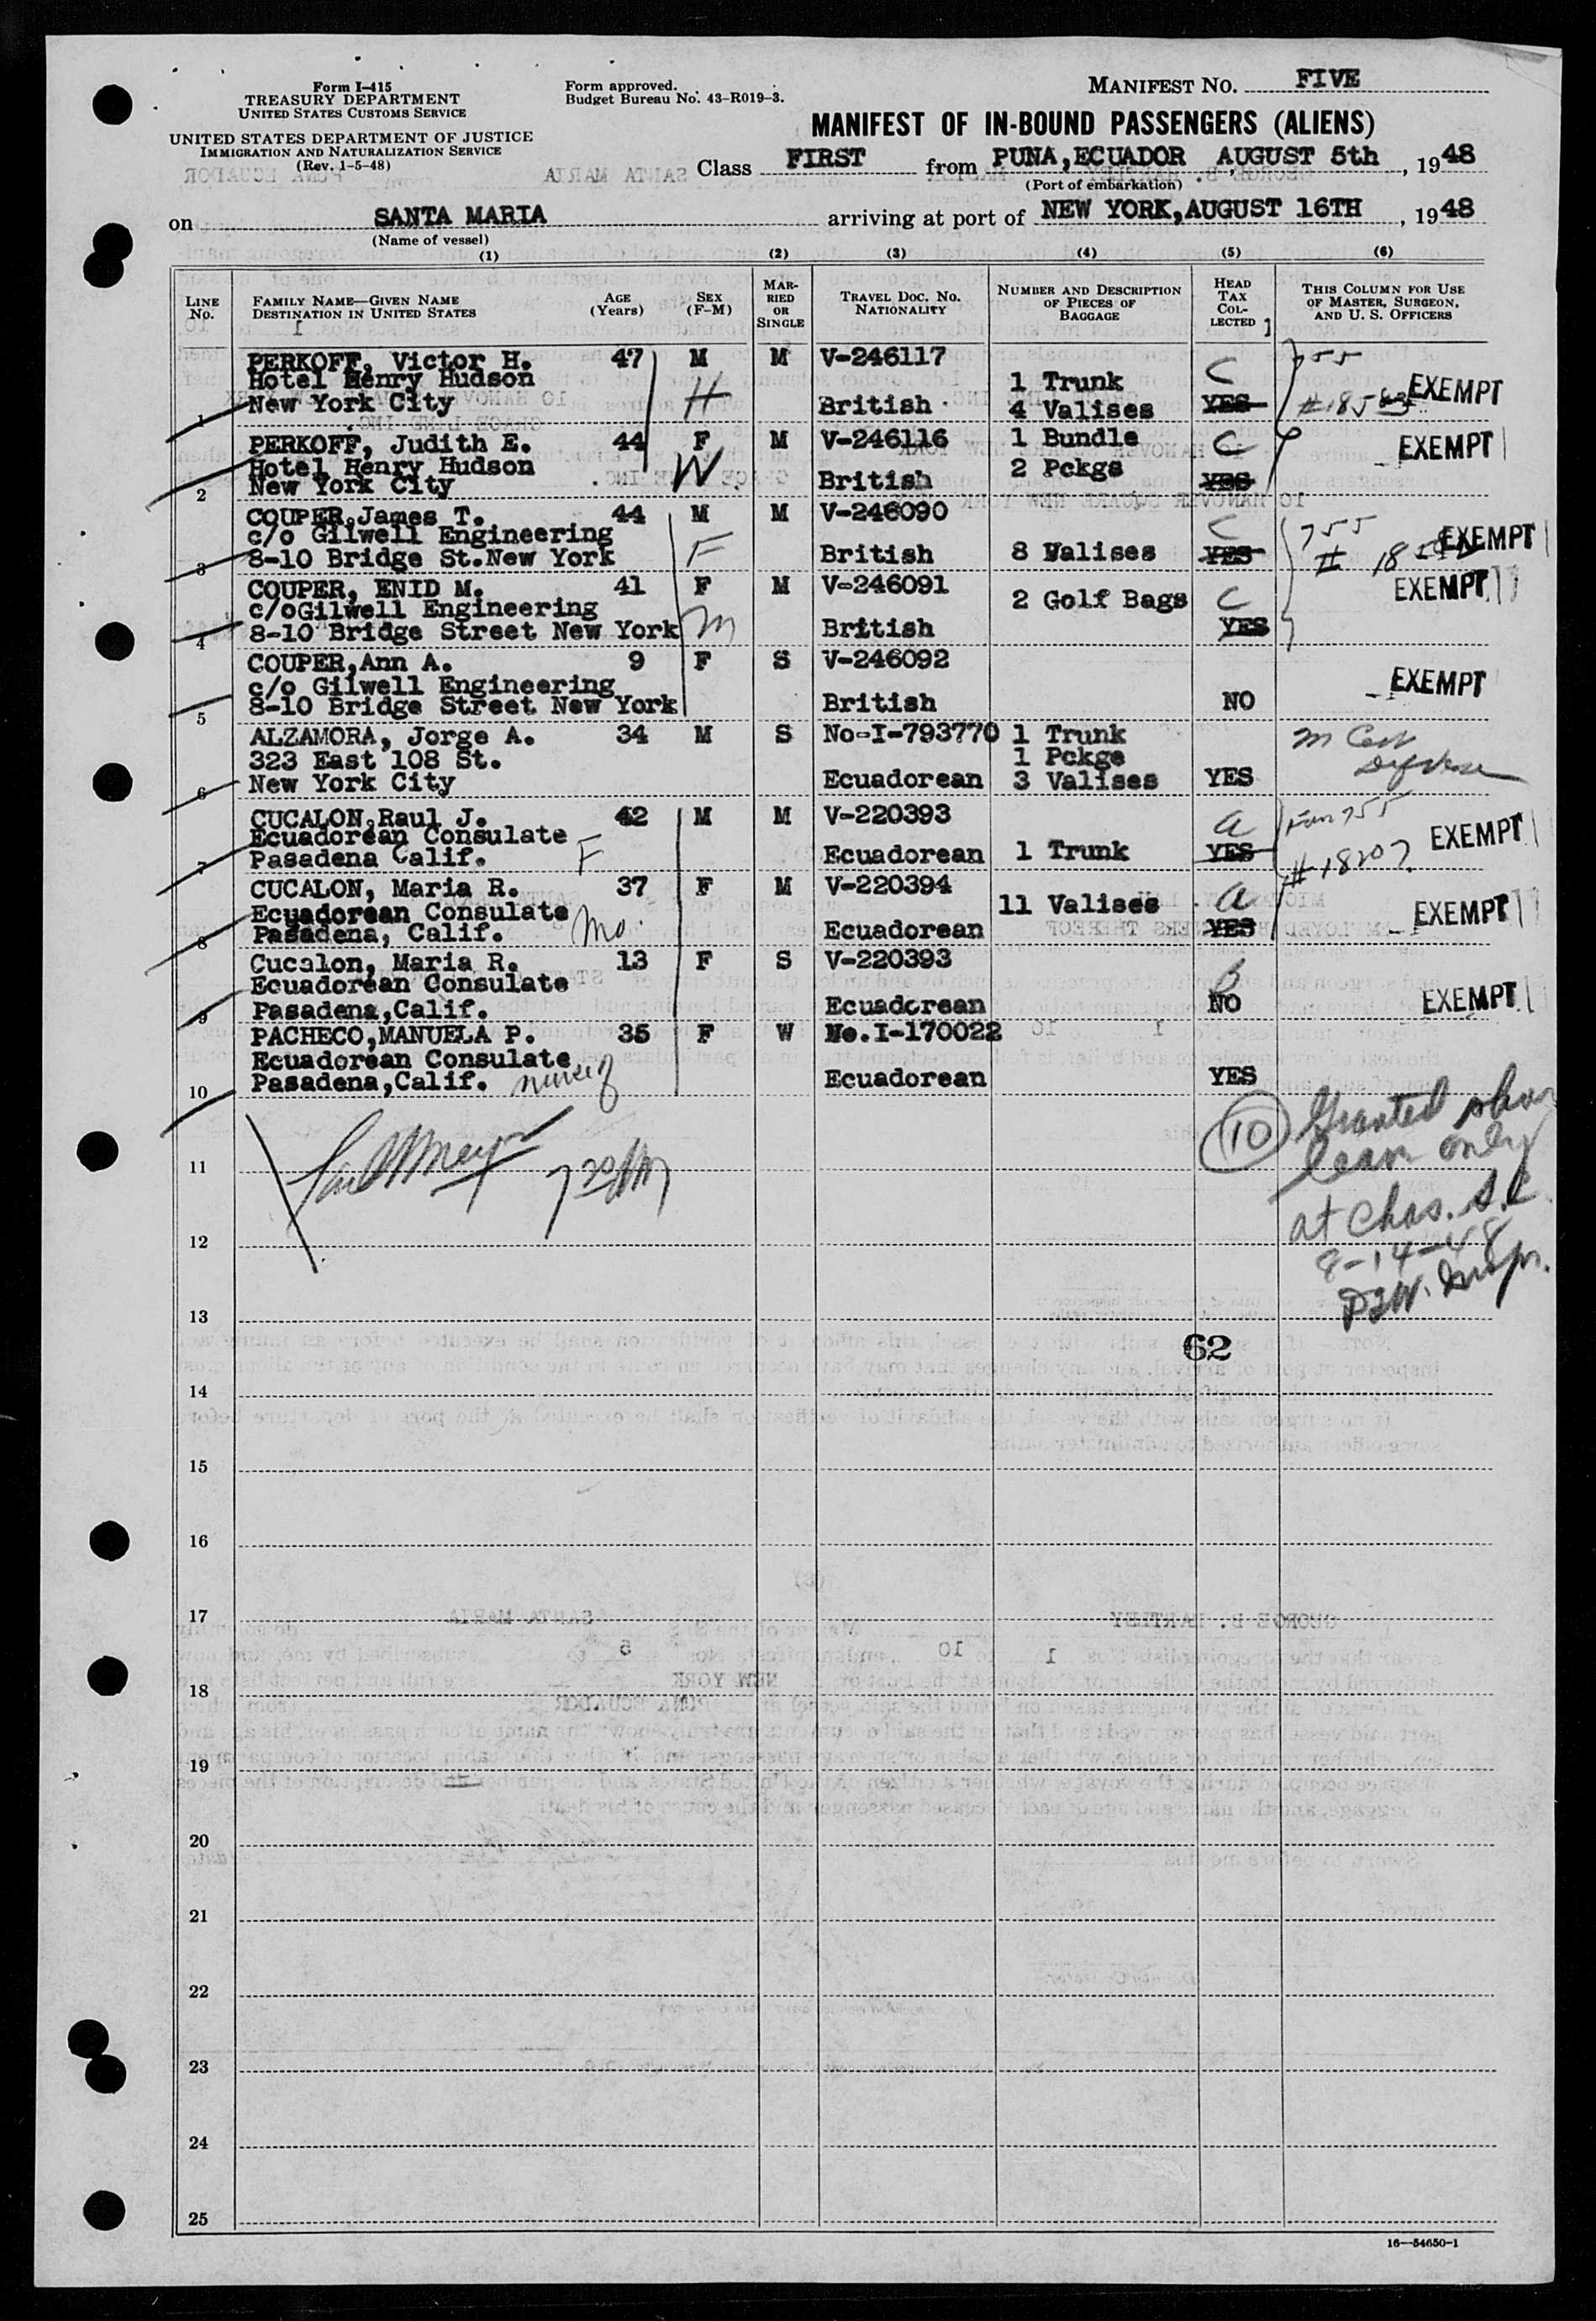 Form I-415
TREASURY DEPARTMENT
UNITED STATES CUSTOMS SERVICE
UNITED STATES DEPARTMENT OF JUSTICE
IMMIGRATION AND NATURALIZATION SERVICE
(Rev. 1-5-48)
Form approved.
Budget Bureau No. 43-R019-3.
MANIFEST NO. FIVE
MANIFEST OF IN-BOUND PASSENGERS (ALIENS)
Class FIRST from PUNA, ECUADOR AUGUST 5th, 1948
(Port of embarkation)
on SANTA MARIA arriving at port of NEW YORK, AUGUST 16TH, 1948
(Name of vessel)
(1) (2) (3) (4) (5) (6)
LINE NO.
FAMILY NAME—GIVEN NAME
DESTINATION IN UNITED STATES
AGE (Years)
SEX (F-M)
MARRIED OR SINGLE
TRAVEL DOC. NO.
NATIONALITY
NUMBER AND DESCRIPTION OF PIECES OF BAGGAGE
HEAD TAX COLLECTED
THIS COLUMN FOR USE OF MASTER, SURGEON, AND U. S. OFFICERS
PERKOFF, Victor H. 47 M M V-246117 C 755
Hotel Henry Hudson 1 Trunk
1 New York City H British 4 Valises YES EXEMPT
PERKOFF, Judith E. 44 F M V-246116 1 Bundle C EXEMPT
Hotel Henry Hudson 2 Pckgs
2 New York City W British YES
COUPER, James T. 44 M M V-246090 C 755
c/o Gilwell Engineering EXEMPT
3 8-10 Bridge St. New York F British 8 Valises YES
COUPER, ENID M. 41 F M V-246091 2 Golf Bags C EXEMPT
c/o Gilwell Engineering
4 8-10 Bridge Street New York m British YES
COUPER, Ann A. 9 F S V-246092 EXEMPT
c/o Gilwell Engineering
5 8-10 Bridge Street New York British NO
ALZAMORA, Jorge A. 34 M S No-I-793770 1 Trunk
323 East 108 St. 1 Pckge
6 New York City Ecuadorean 3 Valises YES
CUCALON, Raul J. 42 M M V-220393 a 755
Ecuadorean Consulate EXEMPT
7 Pasadena Calif. F Ecuadorean 1 Trunk YES #18207
CUCALON, Maria R. 37 F M V-220394 11 Valises a EXEMPT
Ecuadorean Consulate
8 Pasadena, Calif. Mo. Ecuadorean YES
Cucalon, Maria R. 13 F S V-220393
Ecuadorean Consulate
9 Pasadena, Calif. Ecuadorean NO EXEMPT
PACHECO, MANUELA P. 35 F W No. I-170022
Ecuadorean Consulate
10 Pasadena, Calif. Ecuadorean YES
(10) Granted shore
leave only
11
at Chas. S.C.
12
8-14-48
13
62
14
15
16
17
18
19
20
21
22
23
24
25
16—54650-1